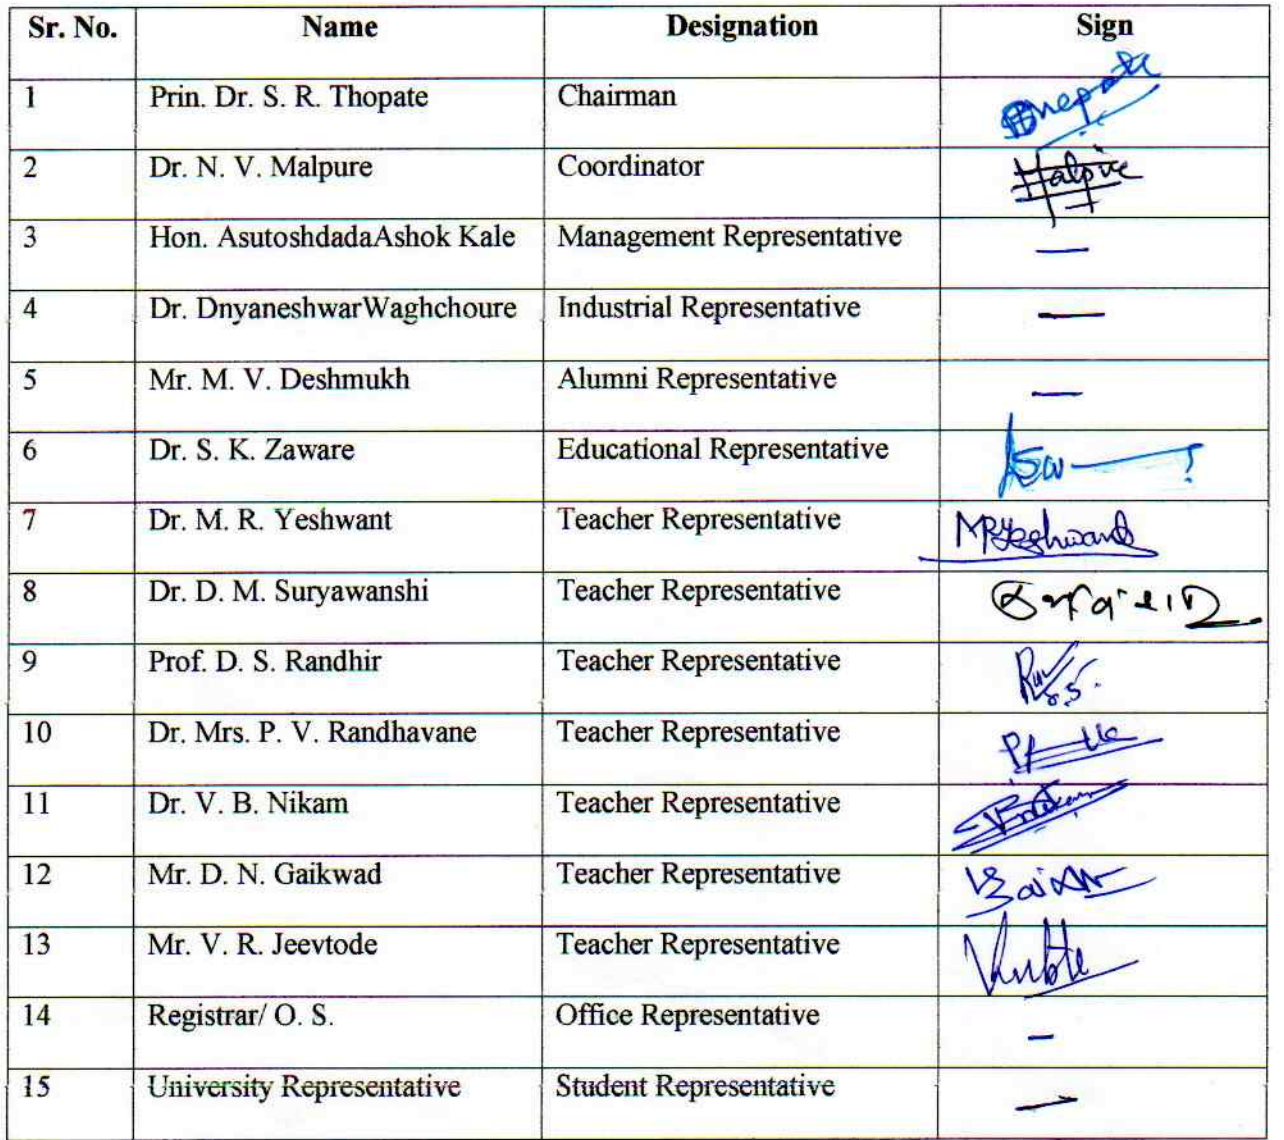 Sr. No. Name Designation Sign
1 Prin. Dr. S. R. Thopate Chairman
2 Dr. N. V. Malpure Coordinator
3 Hon. AsutoshdadaAshok Kale Management Representative —
4 Dr. DnyaneshwarWaghchoure Industrial Representative —
5 Mr. M. V. Deshmukh Alumni Representative —
6 Dr. S. K. Zaware Educational Representative
7 Dr. M. R. Yeshwant Teacher Representative MRYeshwant
8 Dr. D. M. Suryawanshi Teacher Representative
9 Prof. D. S. Randhir Teacher Representative
10 Dr. Mrs. P. V. Randhavane Teacher Representative
11 Dr. V. B. Nikam Teacher Representative
12 Mr. D. N. Gaikwad Teacher Representative
13 Mr. V. R. Jeevtode Teacher Representative
14 Registrar/ O. S. Office Representative –
15 University Representative Student Representative —